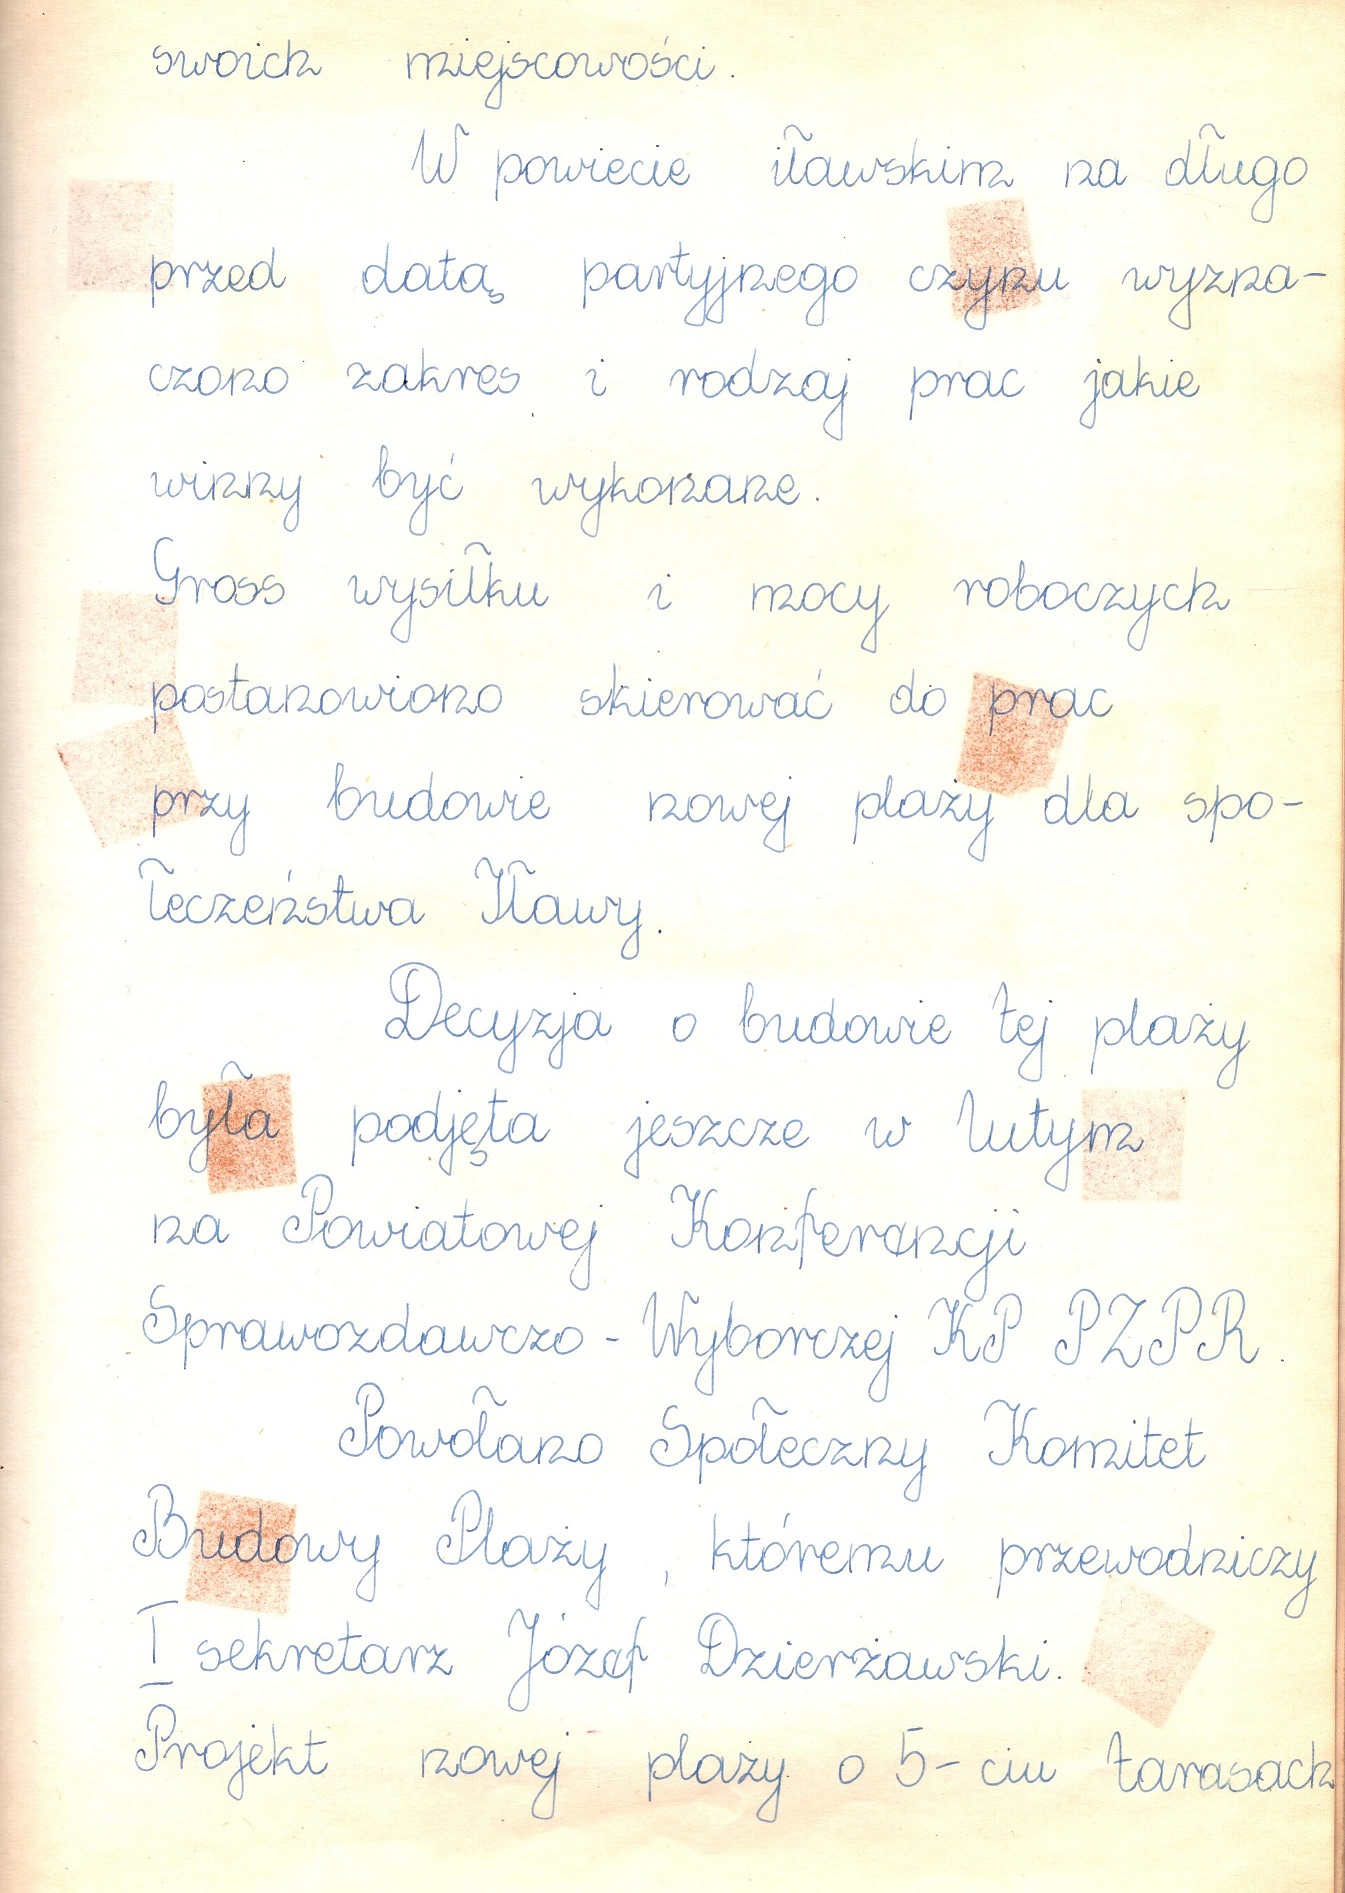 swoich miejscowości.
W powiecie iławskim na długo
przed datą partyjnego czynu wyzna-
czono zakres i rodzaj prac jakie
winny być wykonane.
Gross wysiłku i mocy roboczych
postanowiono skierować do prac
przy budowie nowej plaży dla spo-
łeczeństwa Iławy.
Decyzja o budowie tej plaży
była podjęta jeszcze w lutym
na Powiatowej Konferencji
Sprawozdawczo - Wyborczej KP PZPR.
Powołano Społeczny Komitet
Budowy Plaży, któremu przewodniczy
I sekretarz Józef Dzierżawski.
Projekt nowej plaży o 5-ciu tarasach